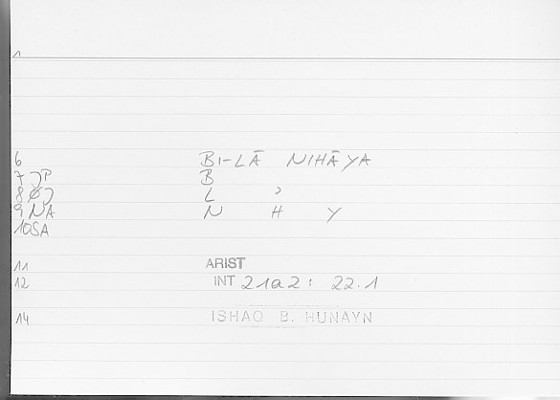 1
6 BI-LĀ NIHĀYA
7 JP B
8 ØJ L ʾ
9 NA N H Y
10 SA
11 ARIST
12 INT 21a2: 22.1
14 ISHAQ B. HUNAYN